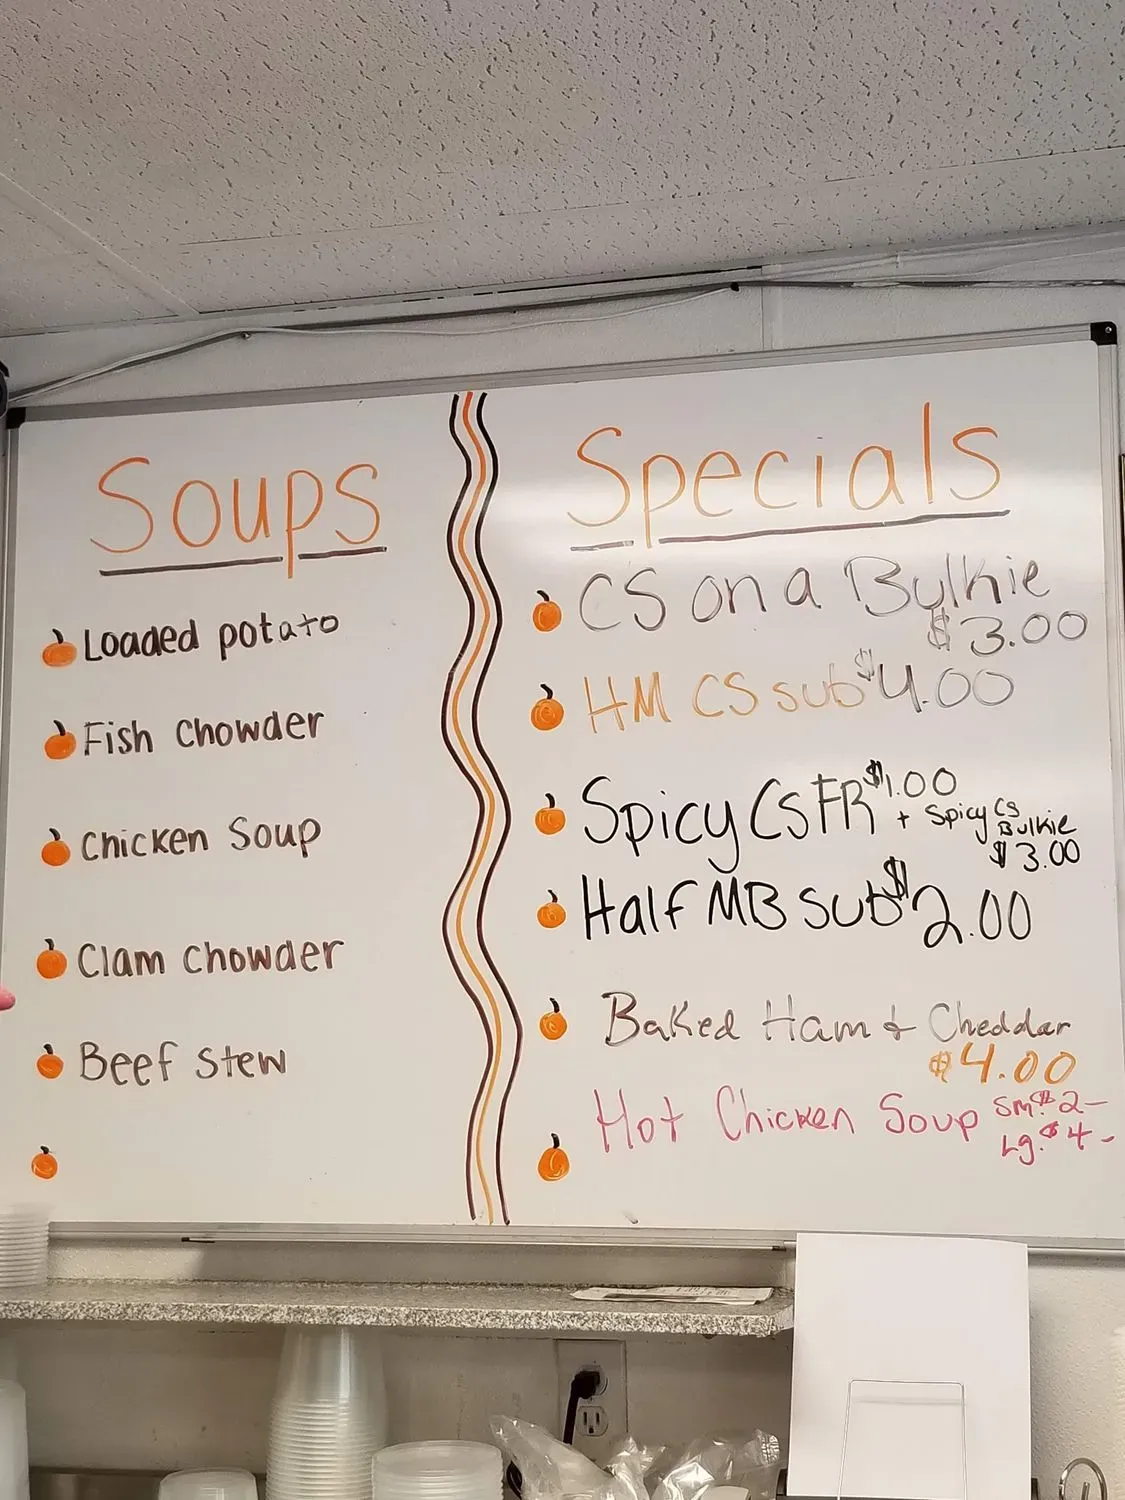 Soups
Loaded potato
Fish Chowder
Chicken Soup
Clam Chowder
Beef Stew
Specials
CS on a Bulkie
$3.00
HM CS sub $4.00
Spicy CS FR $1.00
+ Spicy CS
Bulkie
$3.00
Half MB sub $2.00
Baked Ham & Cheddar
$4.00
Hot Chicken Soup Sm. $2-
Lg. $4-